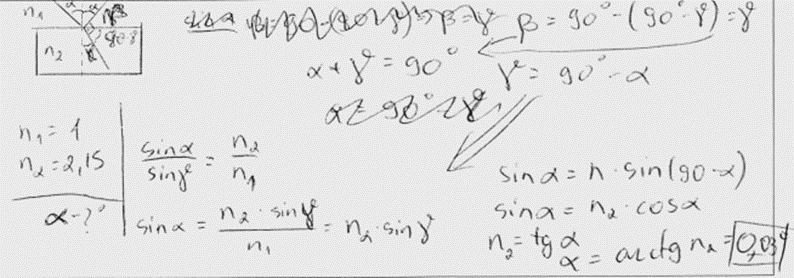 n₁ α α β
90-γ
n₂ γ
β = 90° - (90° - γ) = γ
α + γ = 90° γ = 90° - α
n₁ = 1
n₂ = 2,15
α - ?
sinα/sinγ = n₂/n₁
sinα = n₂ · sinγ/n₁ = n₂ · sinγ
sinα = n · sin(90-α)
sinα = n₂ · cosα
n₂ = tg α
α = arctg n₂ =